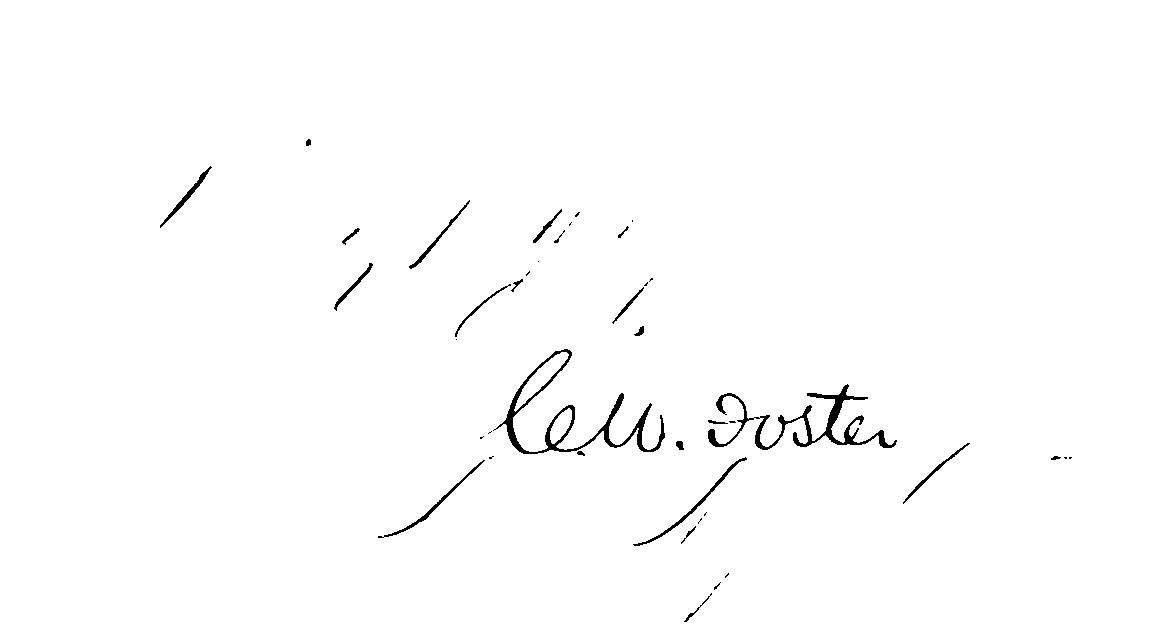 C. W. Foster